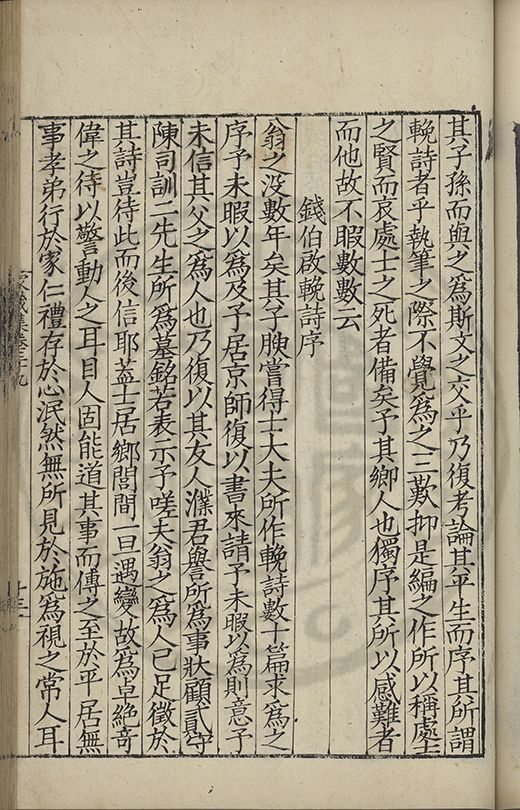 其子孫而與之爲斯文之交乎乃復考論其平生而序其所謂
輓詩者乎執筆之際不覺爲之三歎抑是編之作所以稱處士
之賢而哀處士之死者備矣予其鄉人也獨序其所以感難者
而他故不暇數數云
錢伯啟輓詩序
翁之沒數年矣其子腴嘗得士大夫所作輓詩數十篇求爲之
序予未暇以爲及予居京師復以書來請予未暇以爲則意予
未信其父之爲人也乃復以其友人濮君譽所爲事狀顧貳守
陳司訓二先生所爲墓銘若表示予嗟夫翁之爲人已足徵於
其詩豈待此而後信耶葢士居鄉閭間一旦遇變故爲卓絶奇
偉之待以警動人之耳目人固能道其事而傳之至於平居無
事孝弟行於家仁禮存於心泯然無所見於施爲視之常人耳
家藏集卷三十九
十三